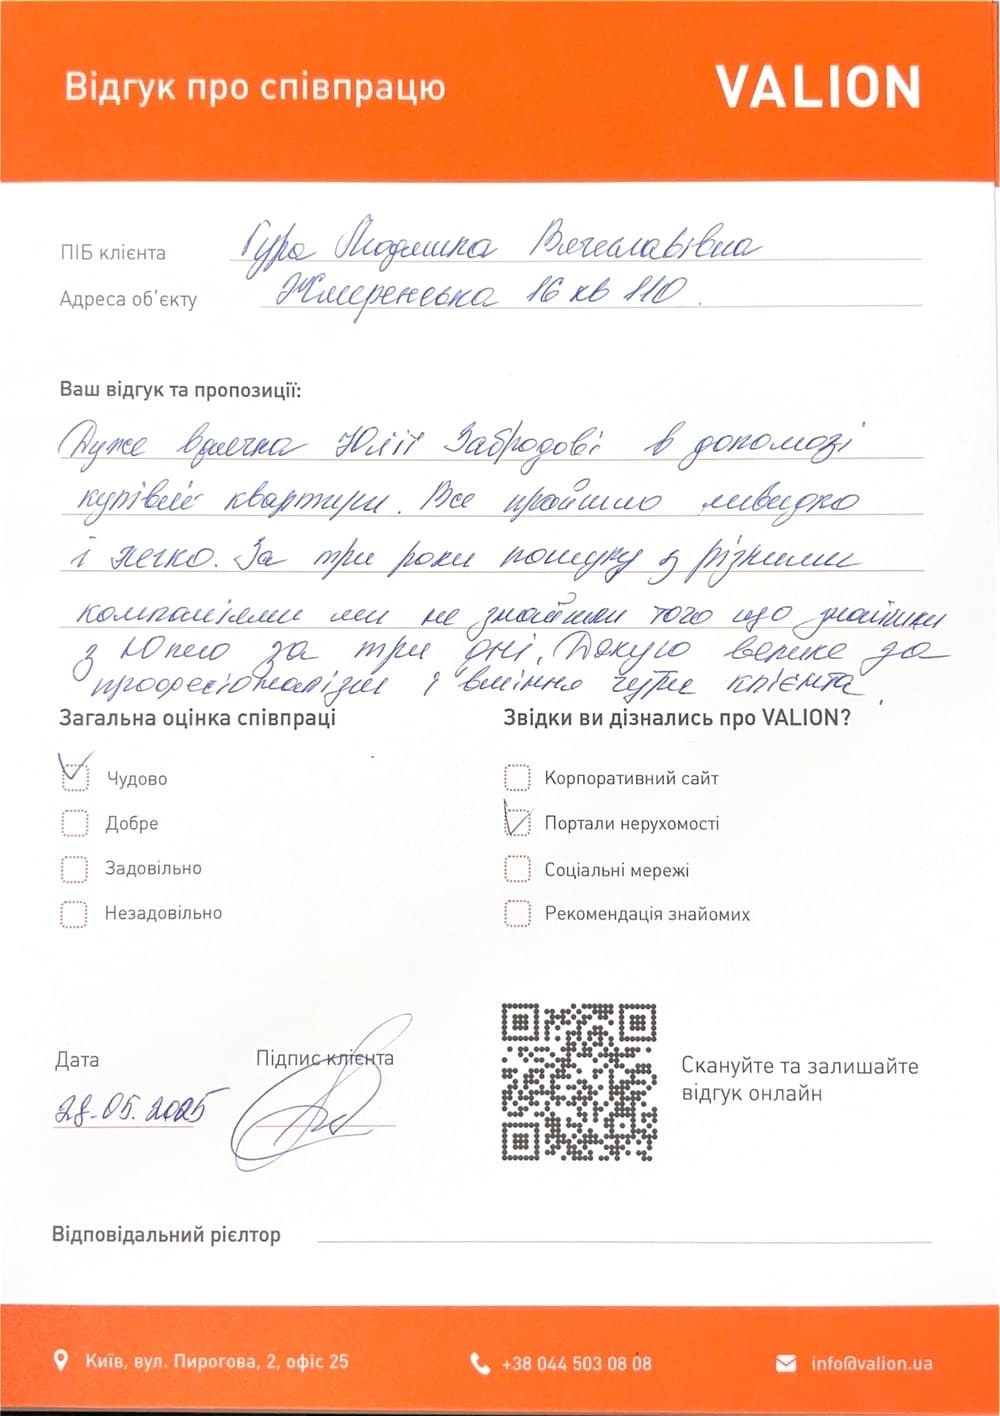 Відгук про співпрацю
VALION
ПІБ клієнта Гура Людмила Вячеславівна
Адреса об'єкту Жмеренська 16 кв 110.
Ваш відгук та пропозиції:
Дуже вдячна Юлії Забродові в допомозі
купівлі квартири. Все пройшло швидко
і легко. За три роки пошуку з різними
компаніями ми не знайшли того що знайшли
з Юлею за три дні. Дякую велике за
професіоналізм і вміння чути клієнта.
Загальна оцінка співпраці
Чудово
Добре
Задовільно
Незадовільно
Звідки ви дізнались про VALION?
Корпоративний сайт
Портали нерухомості
Соціальні мережі
Рекомендація знайомих
Дата
28.05.2025
Підпис клієнта
Скануйте та залишайте
відгук онлайн
Відповідальний рієлтор
Київ, вул. Пирогова, 2, офіс 25
+38 044 503 08 08
info@valion.ua